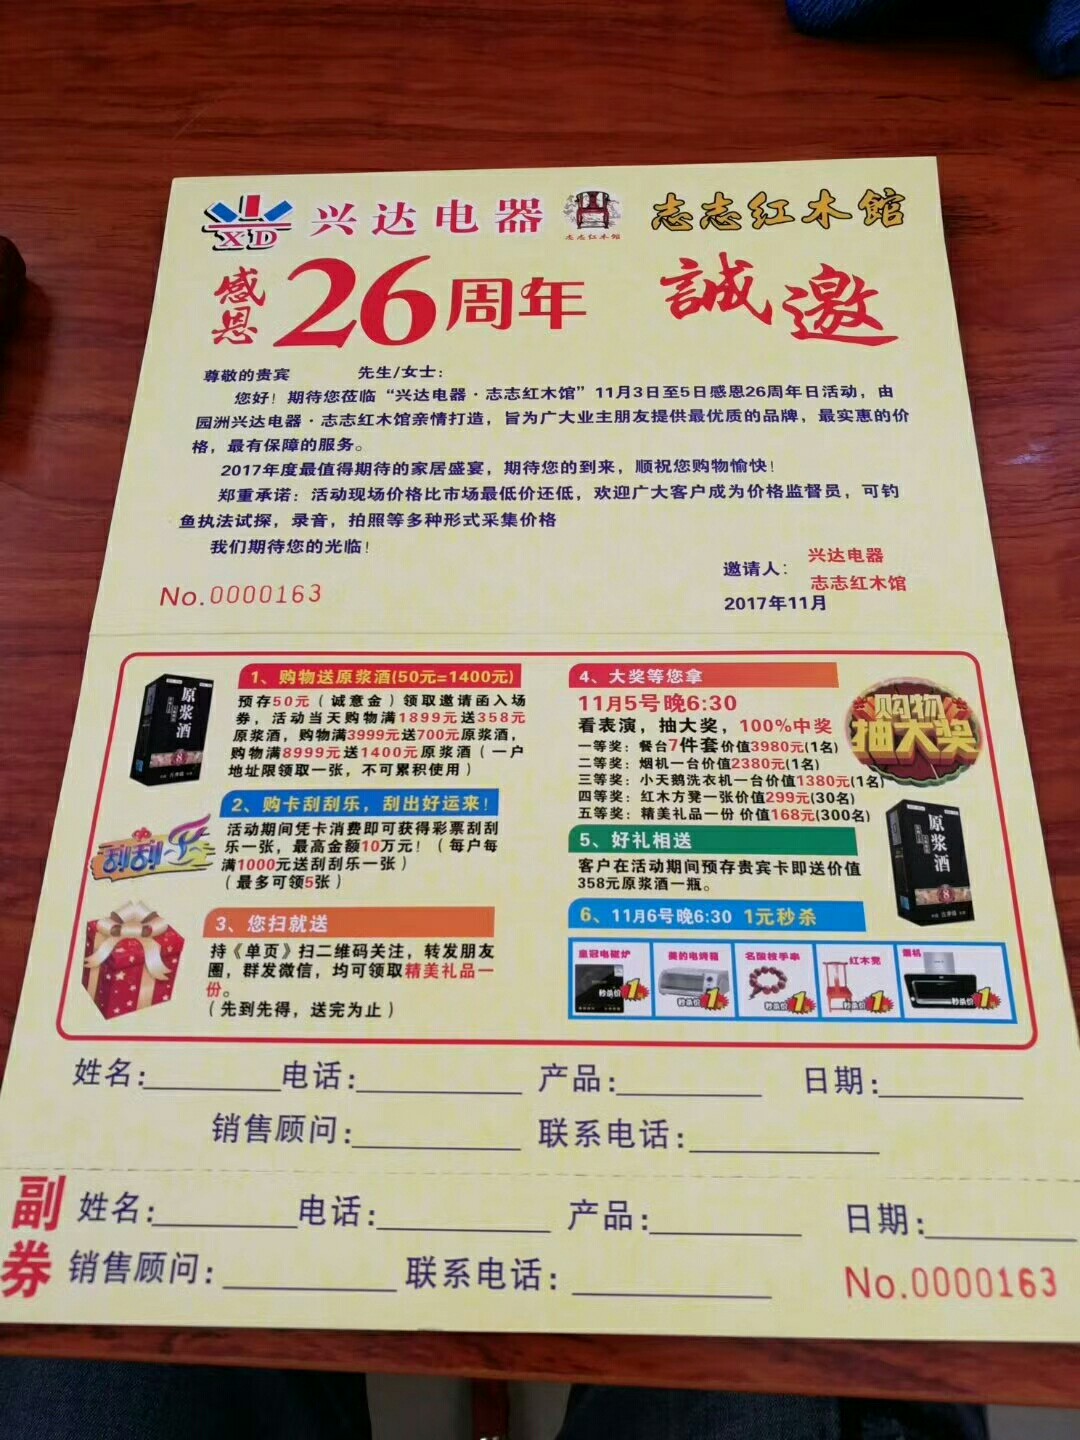 XD 兴达电器 志志红木馆 志志红木館
感恩26周年 誠邀
尊敬的贵宾 先生/女士：
您好！期待您莅临“兴达电器·志志红木馆”11月3日至5日感恩26周年日活动，由
园洲兴达电器·志志红木馆亲情打造，旨为广大业主朋友提供最优质的品牌，最实惠的价
格，最有保障的服务。
2017年度最值得期待的家居盛宴，期待您的到来，顺祝您购物愉快！
郑重承诺：活动现场价格比市场最低价还低，欢迎广大客户成为价格监督员，可钓
鱼执法试探，录音，拍照等多种形式采集价格
我们期待您的光临！
邀请人：兴达电器
志志红木馆
2017年11月
No.0000163
1、购物送原浆酒(50元=1400元)
预存50元（诚意金）领取邀请函入场
券，活动当天购物满1899元送358元
原浆酒，购物满3999元送700元原浆酒，
购物满8999元送1400元原浆酒（一户
地址限领取一张，不可累积使用）
原浆酒
8
2、购卡刮刮乐，刮出好运来！
活动期间凭卡消费即可获得彩票刮刮
乐一张，最高金额10万元！（每户每
满1000元送刮刮乐一张）
（最多可领5张）
刮刮乐
3、您扫就送
持《单页》扫二维码关注，转发朋友
圈，群发微信，均可领取精美礼品一
份。
（先到先得，送完为止）
4、大奖等您拿
11月5号晚6:30
看表演，抽大奖，100%中奖
一等奖：餐台7件套价值3980元(1名)
二等奖：烟机一台价值2380元(1名)
三等奖：小天鹅洗衣机一台价值1380元(1名)
四等奖：红木方凳一张价值299元(30名)
五等奖：精美礼品一份 价值168元(300名)
购物
抽大奖
5、好礼相送
客户在活动期间预存贵宾卡即送价值
358元原浆酒一瓶。
原浆酒
8
6、11月6号晚6:30 1元秒杀
皇冠电磁炉 美的电烤箱 名酸枝手串 红木凳 烟机
秒杀价1元 秒杀价1元 秒杀价1元 秒杀价1元 秒杀价1元
姓名： 电话： 产品： 日期：
销售顾问： 联系电话：
副券
姓名： 电话： 产品： 日期：
销售顾问： 联系电话：
No.0000163